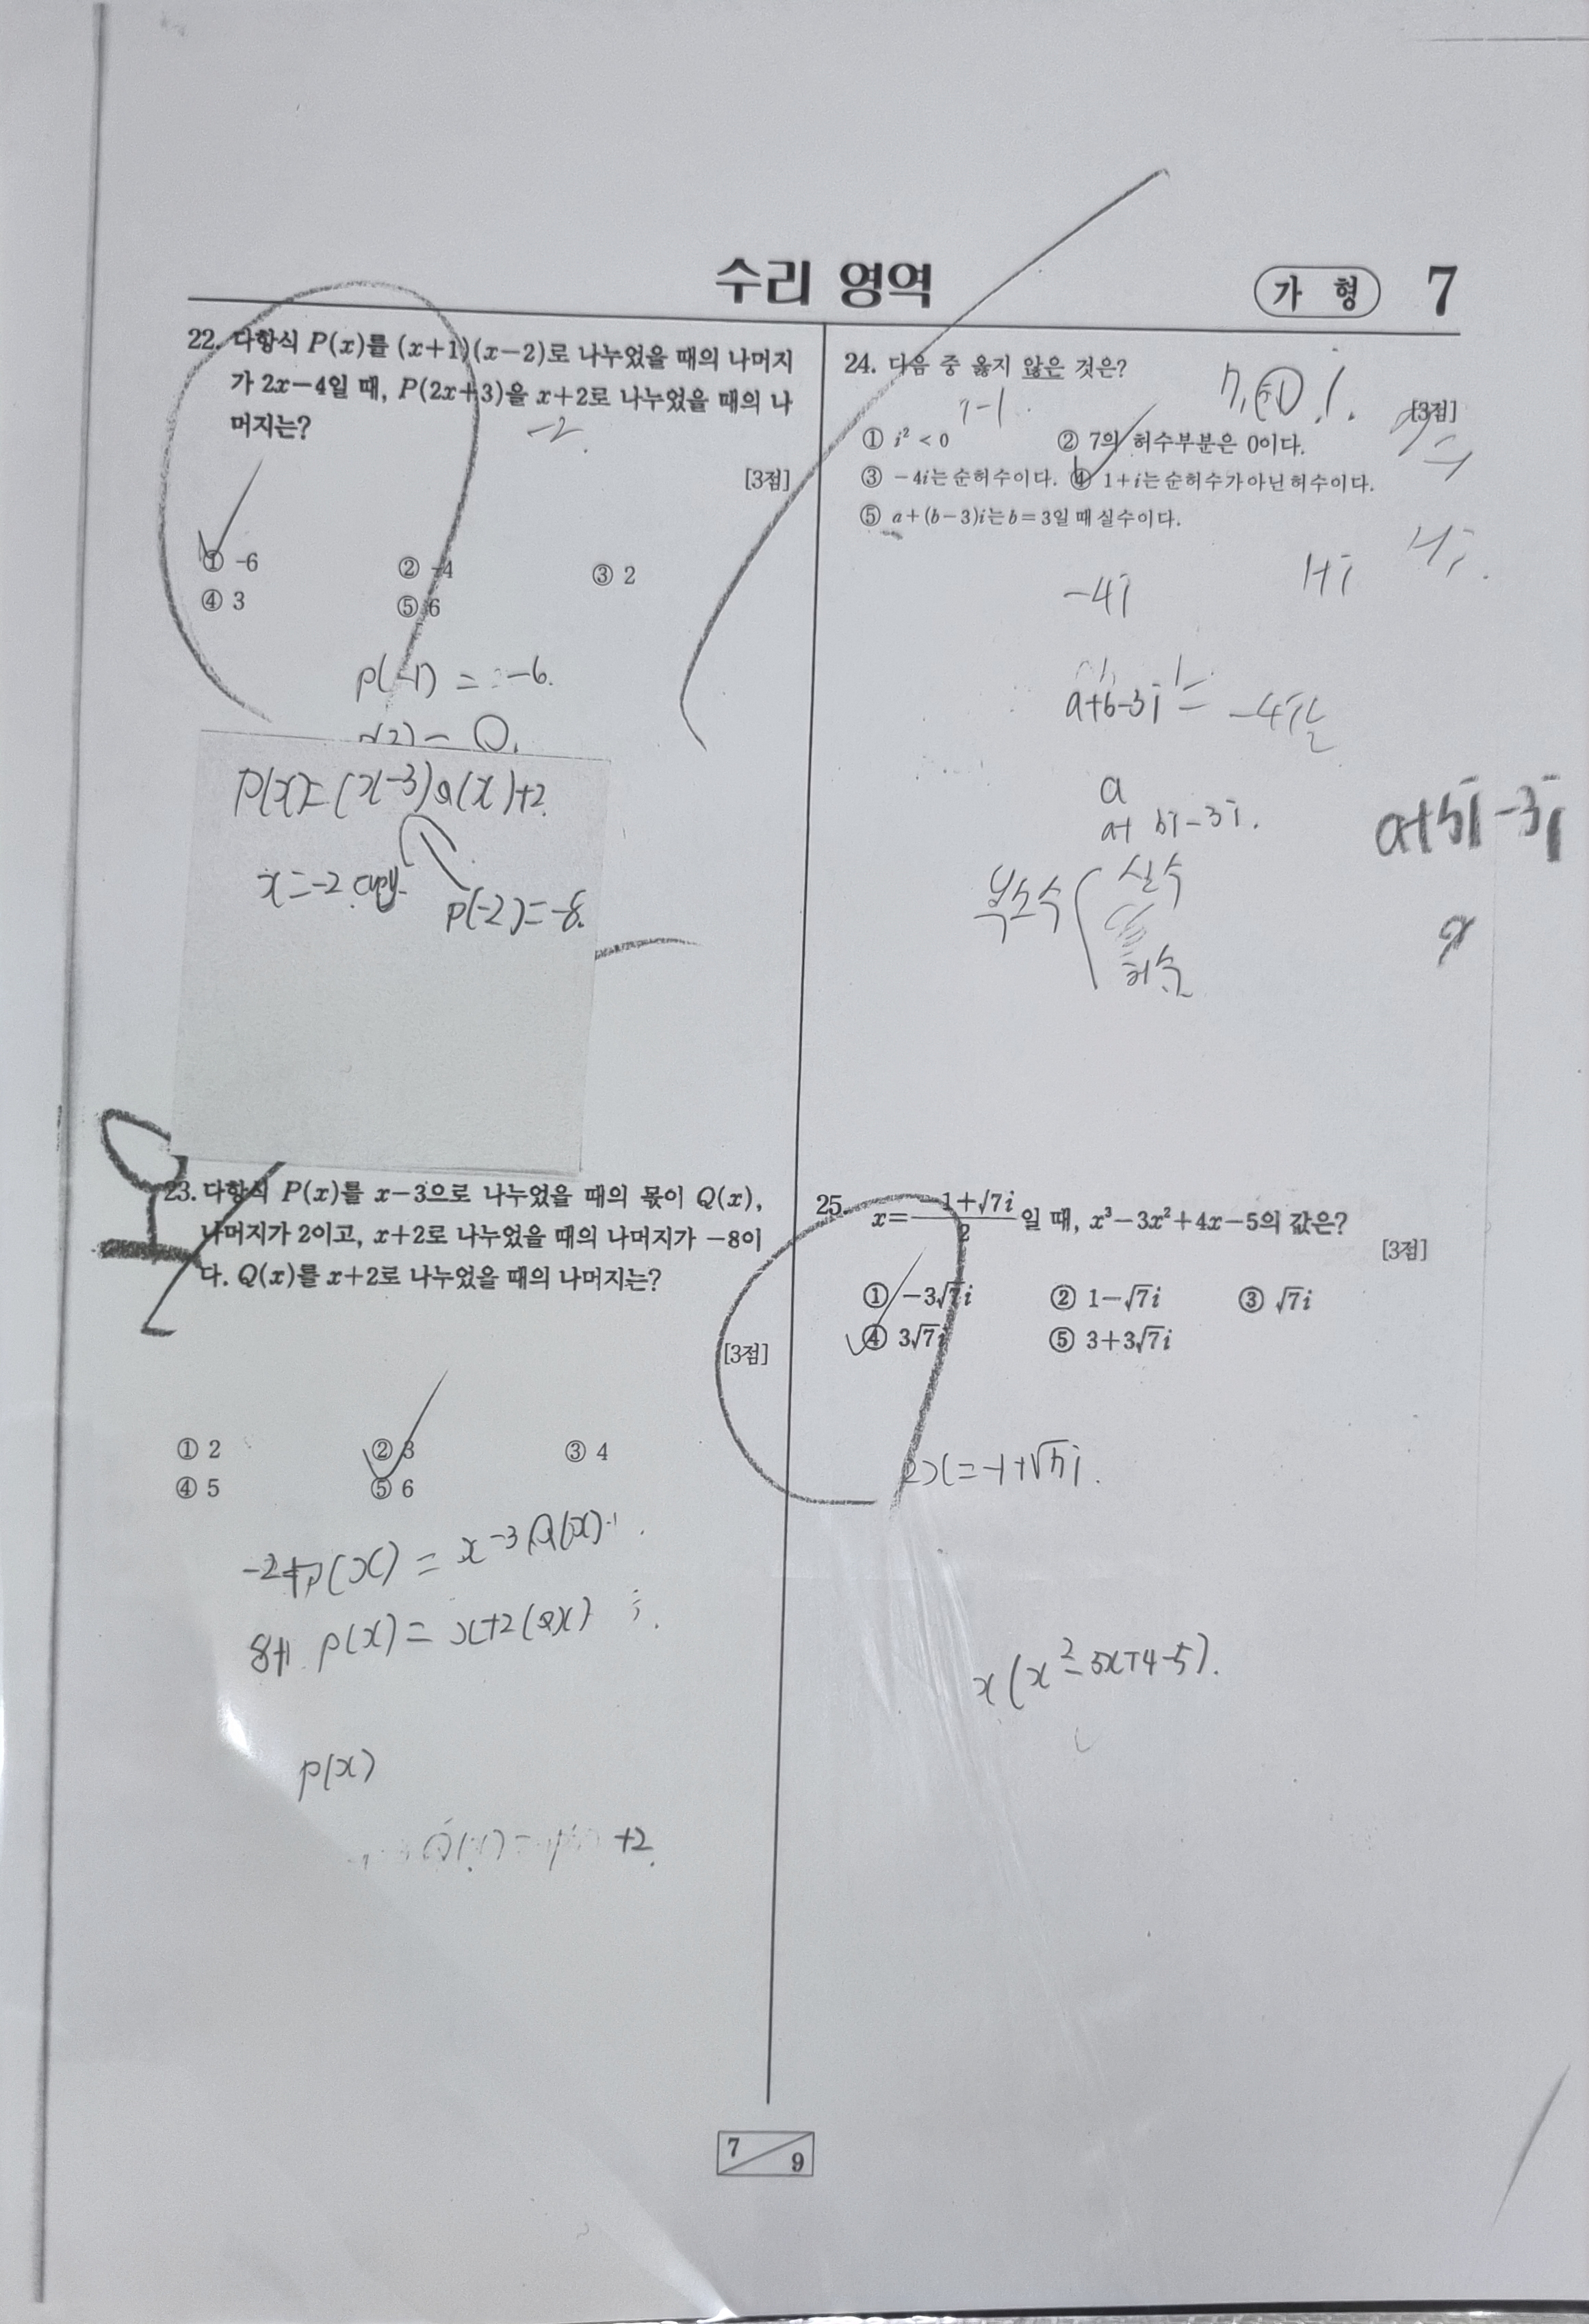 수리 영역
가 형
7
22. 다항식 P(x)를 (x+1)(x-2)로 나누었을 때의 나머지
가 2x-4일 때, P(2x+3)을 x+2로 나누었을 때의 나
머지는?
-2
[3점]
① -6 ② -4 ③ 2
④ 3 ⑤ 6
P(-1) = -6.
P(x)=(x-3)Q(x)+2
x=-2
P(-2)=-8.
23. 다항식 P(x)를 x-3으로 나누었을 때의 몫이 Q(x),
나머지가 2이고, x+2로 나누었을 때의 나머지가 -8이
다. Q(x)를 x+2로 나누었을 때의 나머지는?
[3점]
① 2 ② 3 ③ 4
④ 5 ⑤ 6
P(x) = x-3 Q(x)
P(x) = x+2(Qx)
P(x)
+2
24. 다음 중 옳지 않은 것은?
[3점]
① i² < 0 ② 7의 허수부분은 0이다.
③ -4i는 순허수이다. ④ 1+i는 순허수가 아닌 허수이다.
⑤ a+(b-3)i는 b=3일 때 실수이다.
-4i
1+i
a+b-3i
a
a+ bi-3i.
a+bi-3i
복소수
실수
허수
25. x=(-1+√7i)/2 일 때, x³-3x²+4x-5의 값은?
[3점]
① -3√7i ② 1-√7i ③ √7i
④ 3√7i ⑤ 3+3√7i
2x=-1+√7i.
x(x²-3x+4-5).
7
9